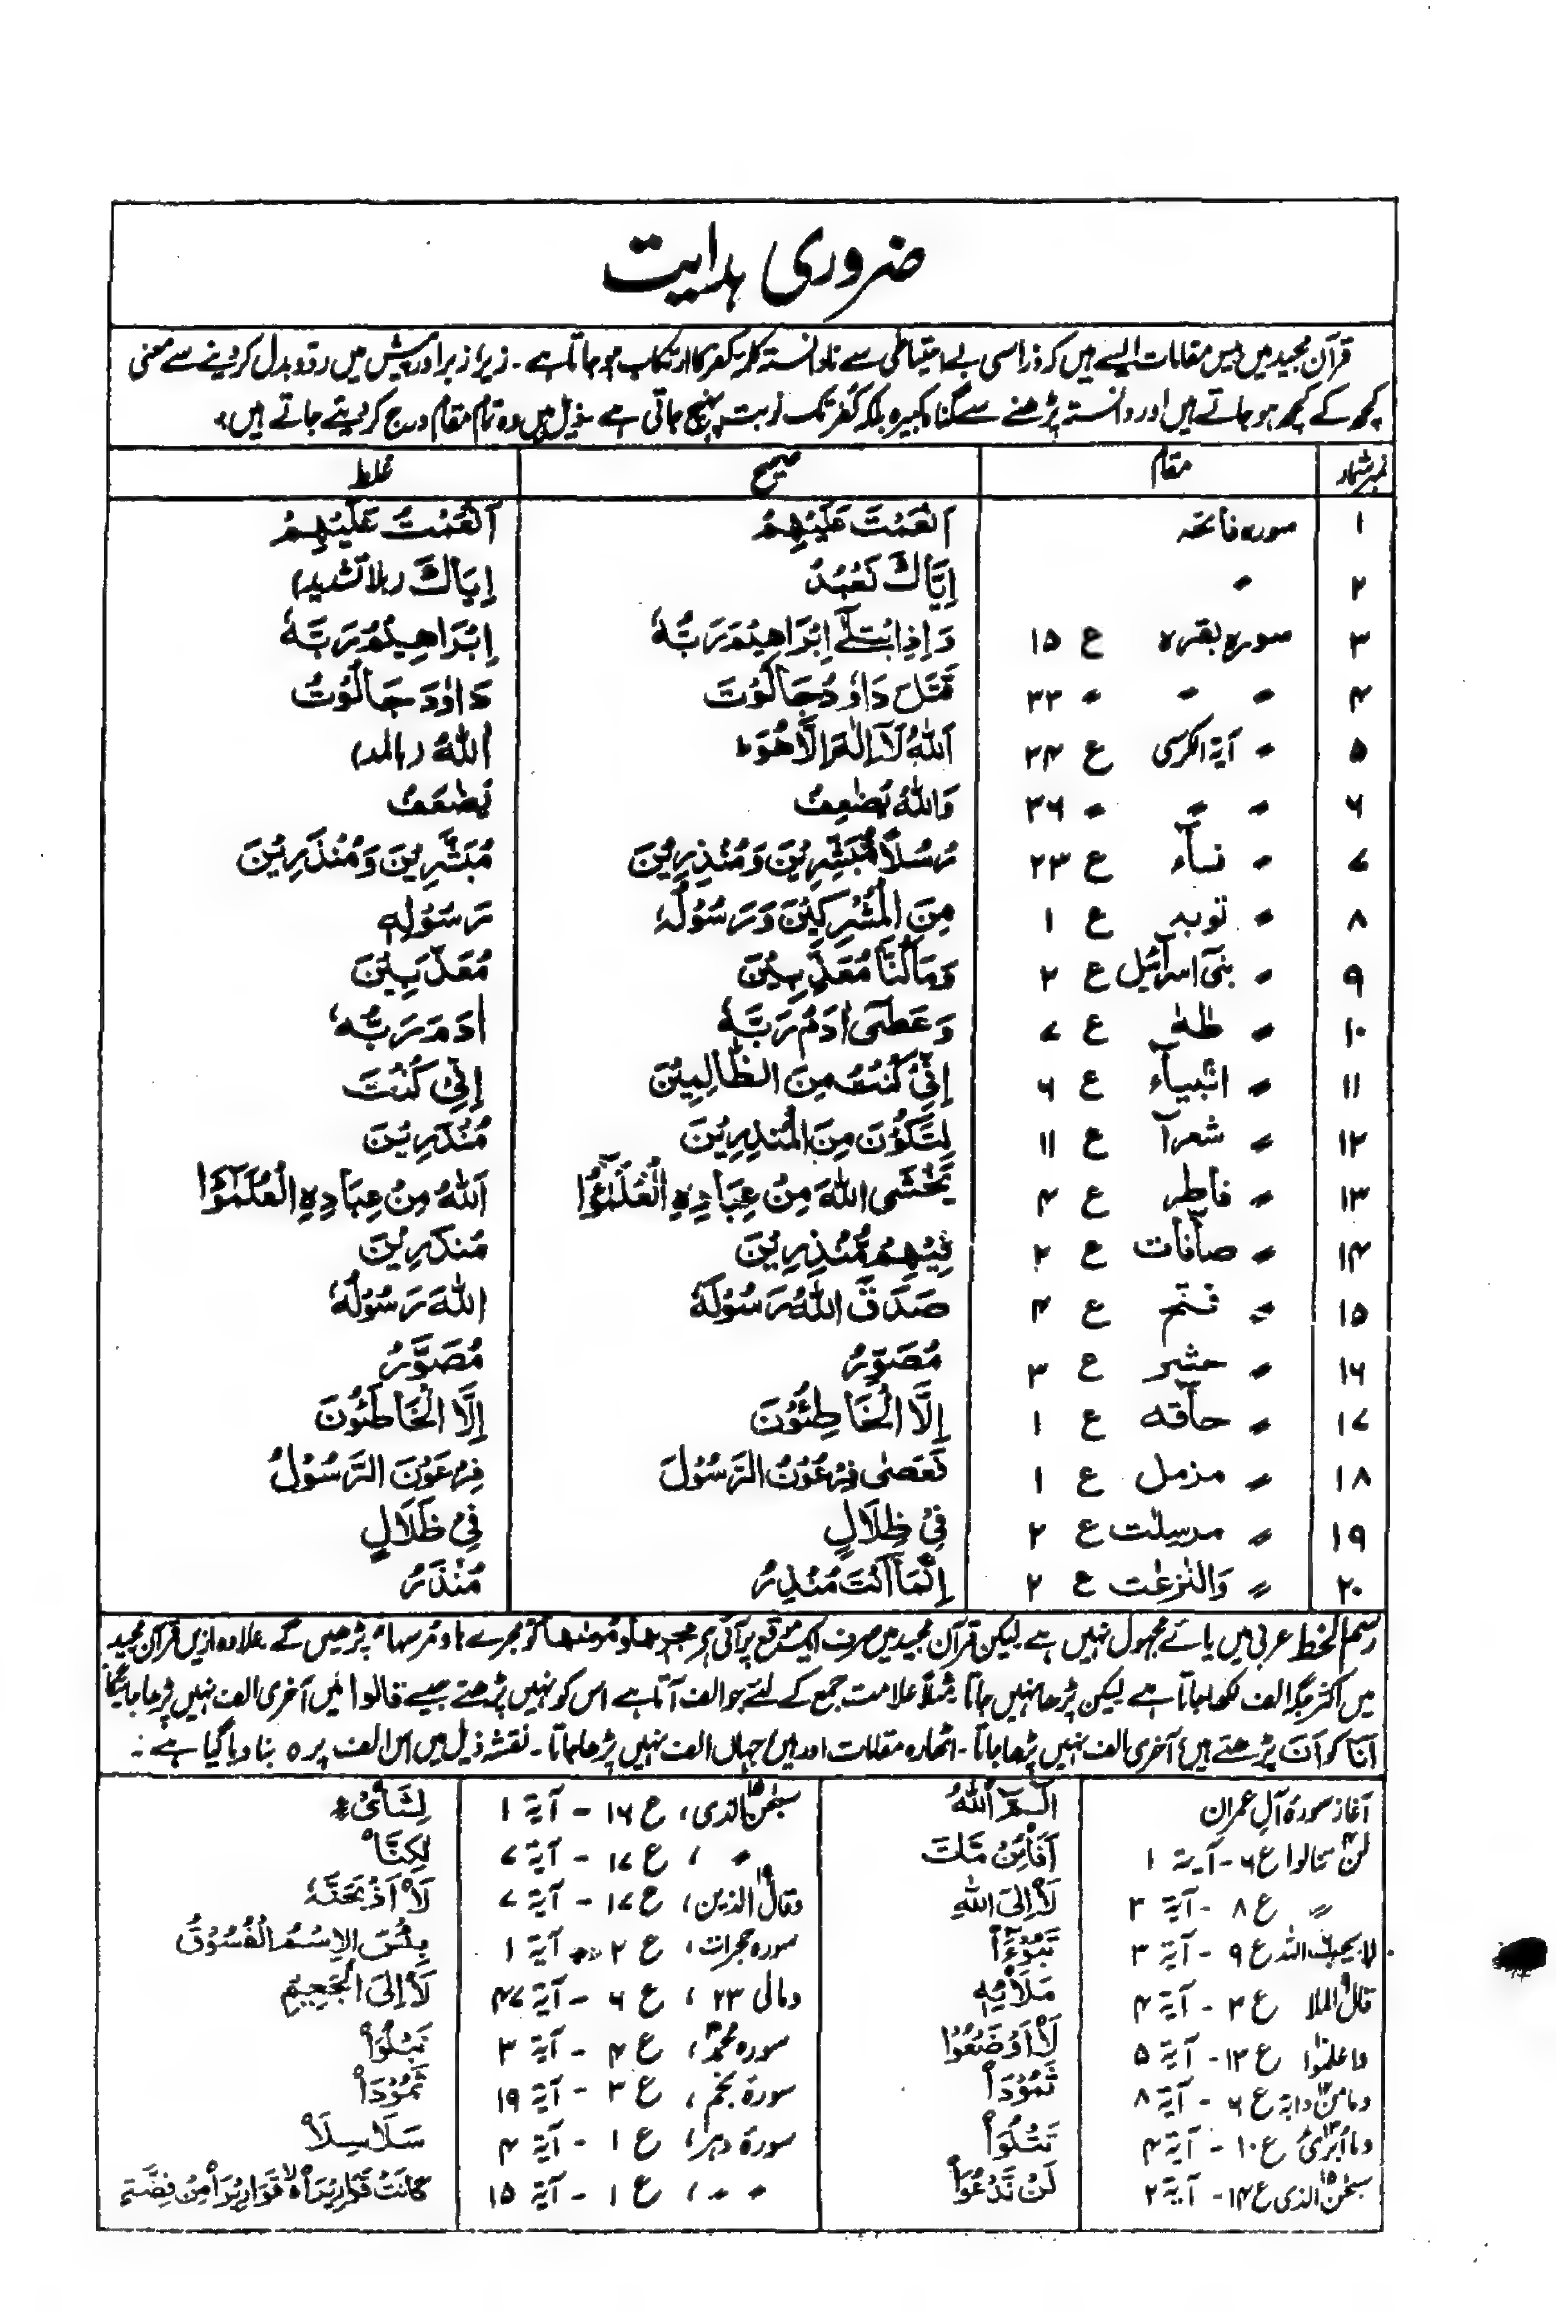 ضروری ہدایت
قرآن مجید میں بیس مقامات ایسے ہیں کہ ذرا سی بے احتیاطی سے نادانستہ کلمۂ کفر کا ارتکاب ہو جاتا ہے۔ زیر زبر اور پیش میں ردّ و بدل کر دینے سے معنی
کچھ کے کچھ ہو جاتے ہیں اور دانستہ پڑھنے سے گناہ کبیرہ بلکہ کفر تک نوبت پہنچ جاتی ہے ذیل میں وہ تمام مقام درج کر دیئے جاتے ہیں۔
نمبر شمار مقام صحیح غلط
۱ سورہ فاتحہ اَنْعَمْتَ عَلَیْهِمْ اَنْعَمْتُ عَلَیْهِمْ
۲ ״ اِیَّاكَ نَعْبُدُ اِیَاكَ (بلا تشدید)
۳ سورہ بقرہ ع ۱۵ وَاِذِ ابْتَلٰۤى اِبْرَاهِیْمَ رَبُّهٗ اِبْرَاهِیْمُ رَبَّهٗ
۴ ״ ״ ״ ۳۳ قَتَلَ دَاوٗدُ جَالُوْتَ دَاوٗدَ جَالُوْتُ
۵ ״ آیۃ الکرسی ع ۳۴ اَللّٰهُ لَاۤ اِلٰهَ اِلَّا هُوَ ط اٰللّٰهُ (بالمد)
۶ ״ ״ ״ ۳۶ وَاللّٰهُ یُضٰعِفُ یُضٰعَفُ
۷ ״ نسآء ع ۲۳ رُسُلًا مُّبَشِّرِیْنَ وَمُنْذِرِیْنَ مُبَشَّرِیْنَ وَمُنْذَرِیْنَ
۸ ״ توبہ ع ۱ مِنَ الْمُشْرِكِیْنَ وَرَسُوْلُهٗ رَسُوْلِهٖ
۹ ״ بنی اسرآئیل ع ۲ وَمَا كُنَّا مُعَذِّبِیْنَ مُعَذَّبِیْنَ
۱۰ ״ طٰهٰ ع ۷ وَعَصٰۤى اٰدَمُ رَبَّهٗ اٰدَمَ رَبُّهٗ
۱۱ ״ انبیآء ع ۶ اِنِّیْ كُنْتُ مِنَ الظَّالِمِیْنَ اِنِّیْ كُنْتَ
۱۲ ״ شعرآ ع ۱۱ لِتَكُوْنَ مِنَ الْمُنْذِرِیْنَ مُنْذَرِیْنَ
۱۳ ״ فاطر ع ۴ یَخْشَى اللّٰهَ مِنْ عِبَادِهِ الْعُلَمٰٓؤُا اَللّٰهُ مِنْ عِبَادِهِ الْعُلَمٰٓؤَا
۱۴ ״ صآفات ع ۲ فِیْهِمْ مُّنْذِرِیْنَ مُنْذَرِیْنَ
۱۵ ״ فتح ع ۴ صَدَقَ اللّٰهُ رَسُوْلَهٗ اللّٰهَ رَسُوْلُهٗ
۱۶ ״ حشر ع ۳ مُصَوِّرُ مُصَوَّرُ
۱۷ ״ حآقه ع ۱ اِلَّا الْخَاطِئُوْنَ اِلَّا الْخَاطَئُوْنَ
۱۸ ״ مزمل ع ۱ فَعَصٰى فِرْعَوْنُ الرَّسُوْلَ فِرْعَوْنَ الرَّسُوْلُ
۱۹ ״ مرسلٰت ع ۲ فِیْ ظِلَالٍ فِیْ ظَلَالٍ
۲۰ ״ والنّزعٰت ع ۲ اِنَّمَاۤ اَنْتَ مُنْذِرُ مُنْذَرُ
رسم الخط عربی میں یائے مجہول نہیں ہے لیکن قرآن مجید میں صرف ایک موقع پر آئی ہے مجرىها و مرسٰها کو مجرے ہا و مرسہا پڑھیں گے۔ علاوہ ازیں قرآن مجید
میں اکثر جگہ الف لکھا جاتا ہے لیکن پڑھا نہیں جاتا مثلاً علامت جمع کے لئے جو الف آتا ہے اس کو نہیں پڑھتے جیسے قالوا میں آخری الف نہیں پڑھا جائیگا
اَنَا کو اَنَ پڑھتے ہیں آخری الف نہیں پڑھا جاتا۔ اٹھارہ مقامات اور ہیں جہاں الف نہیں پڑھا جاتا۔ نقشہ ذیل میں اس الف پر ہ بنا دیا گیا ہے۔
آغاز سورۃ آل عمران الٓـمّٓ اللّٰهُ سبحٰن الذی، ع ۱۶ - آیۃ ۱ لِشَایْءٍ
لن تنالوا ع ۶ - آیۃ ۱ اَفَاۡئِنْ مَّاتَ ״ ، ع ۱۷ - آیۃ ۷ لٰكِنَّا۠
״ ع ۸ - آیۃ ۳ لَاۡاِلَى اللّٰهِ وقال الذین، ع ۱۷ - آیۃ ۷ لَاۡاَذْبَحَنَّهٗ
لا یحب اللہ ع ۹ - آیۃ ۳ تَبُوْٓءَاۡ سورہ حجرات، ع ۲ - آیۃ ۱ بِئْسَ الِاسْمُ الْفُسُوْقُ
قال الملا ع ۳ - آیۃ ۴ مَلَاۡئِهٖ ومالی ۲۳، ع ۶ - آیۃ ۴۷ لَاۡاِلَى الْجَحِیْمِ
واعلموا ع ۱۳ - آیۃ ۵ لَاۡاَوْضَعُوْا سورہ محمدؐ، ع ۴ - آیۃ ۳ نَبْلُوَاۡ
وما من دابۃ ع ۶ - آیۃ ۸ ثَمُوْدَاۡ سورۃ نجم، ع ۳ - آیۃ ۱۹ ثَمُوْدَاۡ
وما ابرئ ع ۱۰ - آیۃ ۴ تَتْلُوَاۡ سورۃ دہر، ع ۱ - آیۃ ۴ سَلَاسِلَاۡ
سبحٰن الذی ع ۱۴ - آیۃ ۲ لَنْ نَّدْعُوَاۡ ״ ״، ع ۱ - آیۃ ۱۵ كَانَتْ قَوَارِیْرَاۡ قَوَارِیْرَاۡ مِنْ فِضَّةٍ